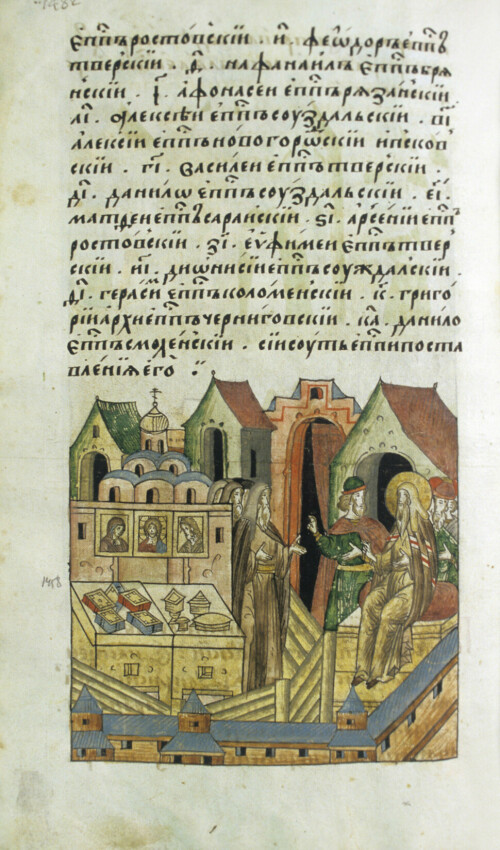 1482
епⷭ҇пъ ростовскїи . и҃ . феѡдоръ епⷭ҇пъ
тверскїи . д҃ . нафанаилъ епⷭ҇пъ бря
нскїи . і҃ . афонасеи епⷭ҇пъ рязанскїи
аі҃ . алексѣи епⷭ҇пъ соуздальскїи . ві҃
алексїи епⷭ҇пъ новогорѡⷣскїи ипсков
скїи . гі҃ . василеи епⷭ҇пъ тверскїи .
ді҃ . данилѡ епⷭ҇пъ соуздальскїи . еі҃ .
матѳеи епⷭ҇пъ сараискїи . ѕі҃ . арсенїи епⷭ҇пъ
ростовскїи . зі҃ . еуфимеи епⷭ҇пъ твер
скїи . иі҃ . дишнисїи епⷭ҇пъ соуждалскїи .
ѳі҃ . герасиⷨ епⷭ҇пъ коломенскїи . к҃ . григо
рїи архиепⷭ҇пъ черниговскїи . ка҃ . данило
епⷭ҇пъ смоленскїи . сїи соуть епⷭ҇пи поста
вленїя его